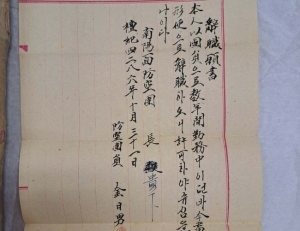 解職願書
本人以團員으로數年間勤務中이던바今番
形便으로解職하오니許可하야쥬심을
나이다
南陽面防空團長
檀紀四二八六年十月三十一日
防空團員 金日男